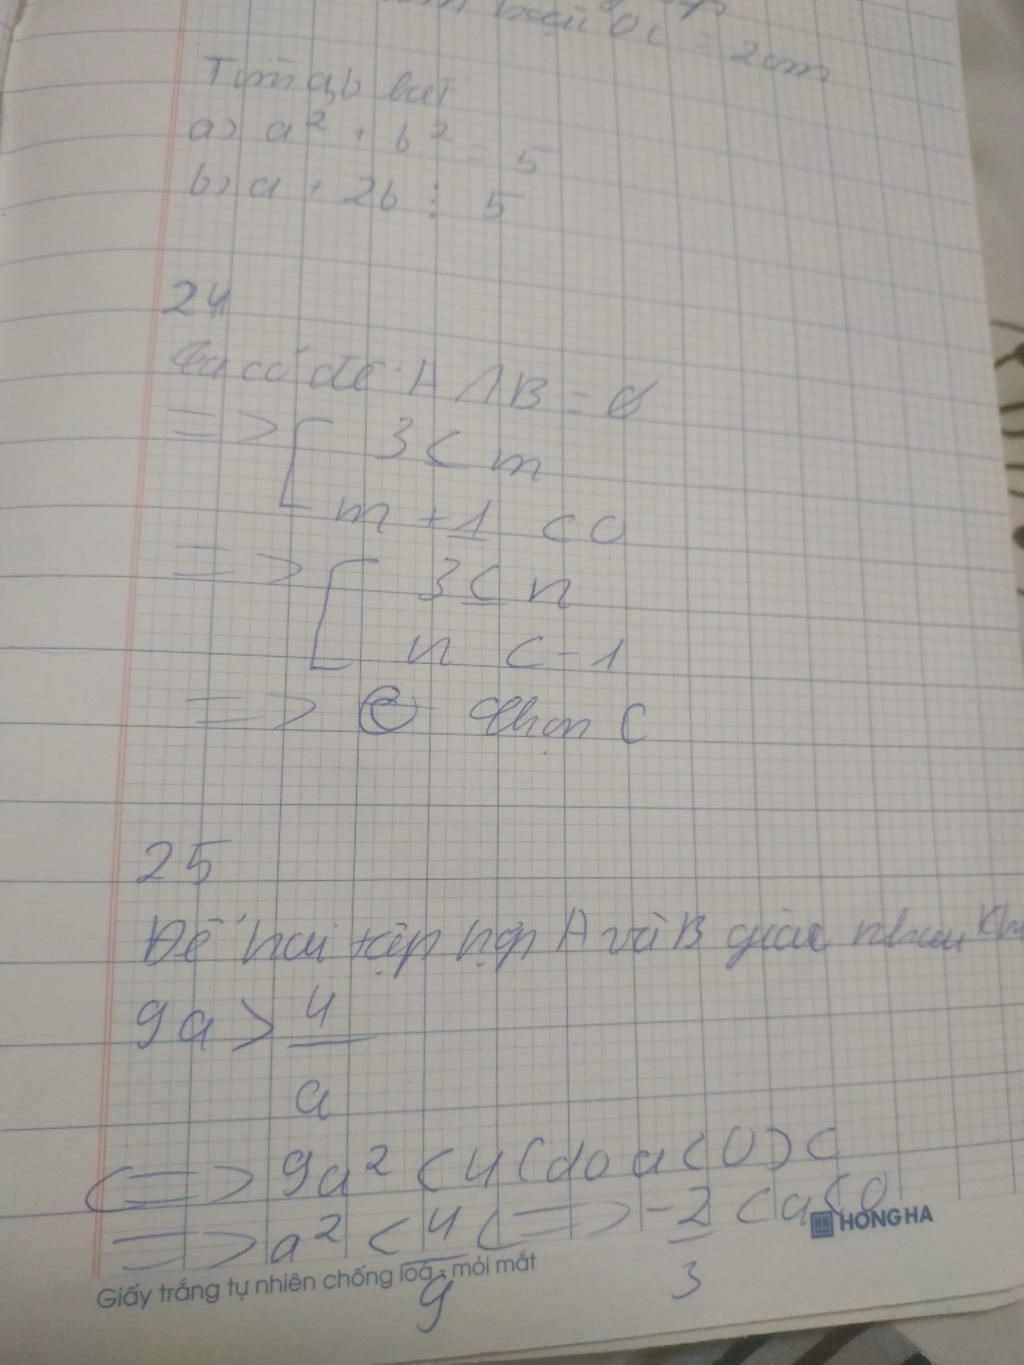 = 2cm
Tìm a,b biết
a) a² + b² = 5
b) a + 2b ⋮ 5
24
Ta có để A ∩ B = ∅
=> [ 3 < m
m + 1 < 0
=> [ 3 ≤ n
n < -1
=> C Chọn C
25
Để hai tập hợp A và B giao nhau khi
9a > 4/a
<=> 9a² < 4 (do a < 0) <
=> a² < 4/9 <=> -2/3 < a < 0
HONG HA
Giấy trắng tự nhiên chống loá - mỏi mắt